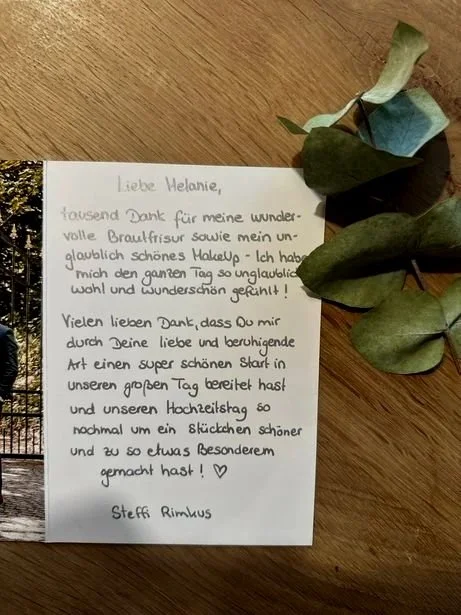 Liebe Melanie,
tausend Dank für meine wunder-
volle Brautfrisur sowie mein un-
glaublich schönes MakeUp - Ich habe
mich den ganzen Tag so unglaublich
wohl und wunderschön gefühlt!
Vielen lieben Dank, dass Du mir
durch Deine liebe und beruhigende
Art einen super schönen Start in
unseren großen Tag bereitet hast
und unseren Hochzeitstag so
nochmal um ein Stückchen schöner
und zu so etwas Besonderem
gemacht hast! ♡
Steffi Rimkus